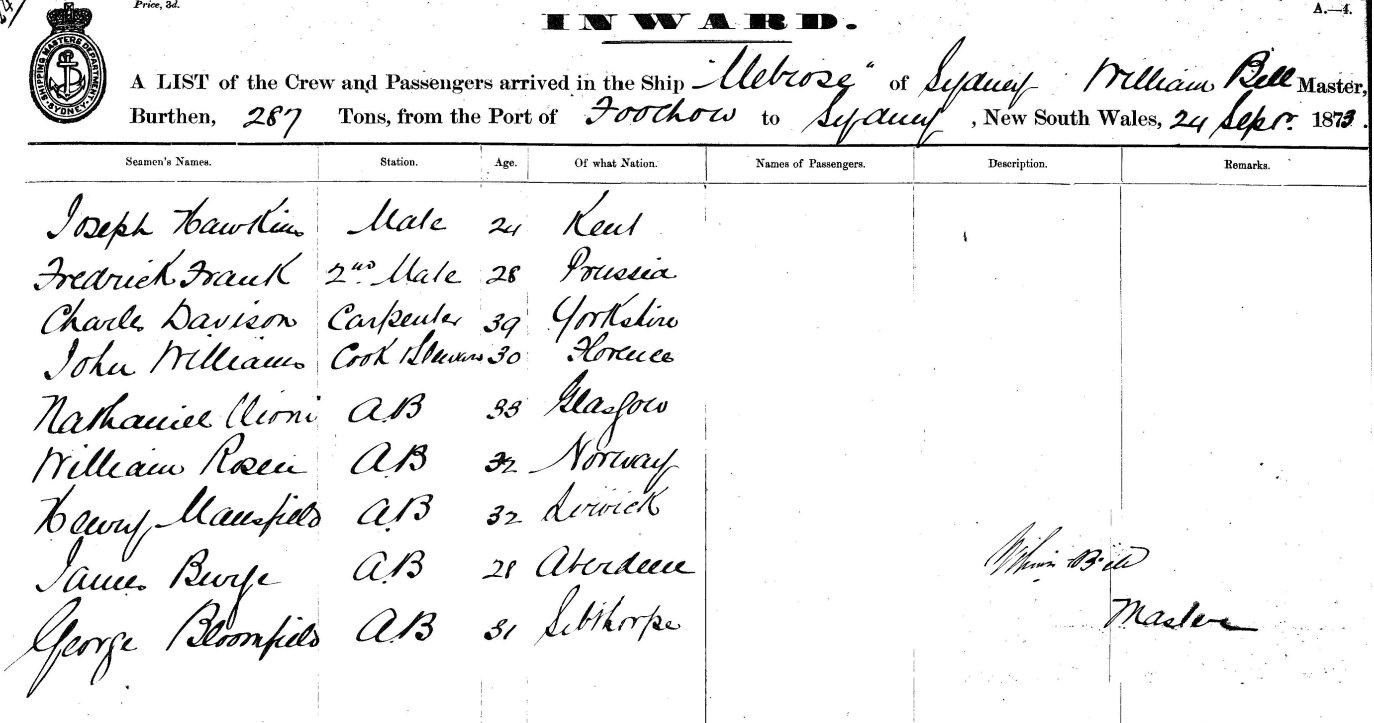 Price, 3d.
A.—4.
INWARD.
SHIPPING MASTERS DEPARTMENT SYDNEY
A LIST of the Crew and Passengers arrived in the Ship "Melrose" of Sydney William Bell Master,
Burthen, 287 Tons, from the Port of Foochow to Sydney, New South Wales, 24 Sepr. 1873.
Seamen's Names. Station. Age. Of what Nation. Names of Passengers. Description. Remarks.
Joseph Hawkins Mate 24 Kent
Fredrick Frank 2nd Mate 28 Prussia
Charles Davison Carpenter 39 Yorkshire
John Williams Cook Steward 30 Florence
Nathaniel AB 33 Glasgow
William Rosen AB 32 Norway
Henry Mansfield AB 32 Lerwick
James AB 28 Aberdeen
George Bloomfield AB 31 Sibthorpe
Bell
Master